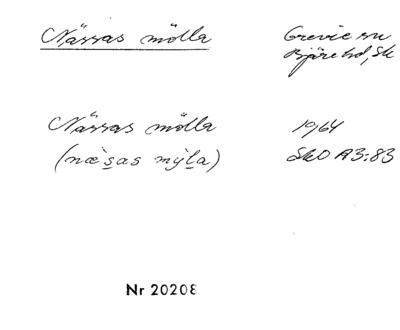 Nässas mölla
Grevie sn
Bjäre hd, Sk
Nässas mölla
(næ̀s̲as mỳl̲a)
1964
SkO A3:83
Nr 20208